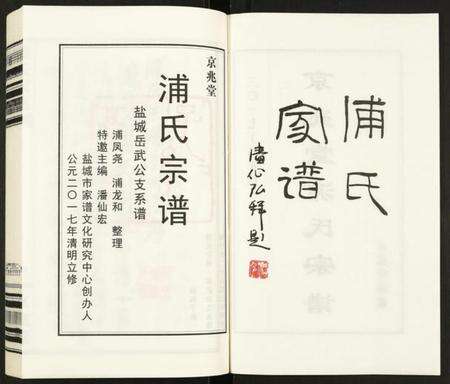 浦氏
家谱
潘仙弘拜题
京兆堂
浦氏宗谱
盐城岳武公支系谱
浦凤尧 浦龙和 整理
特邀主编 潘仙宏
盐城市家谱文化研究中心创办人
公元二〇一七年清明立修